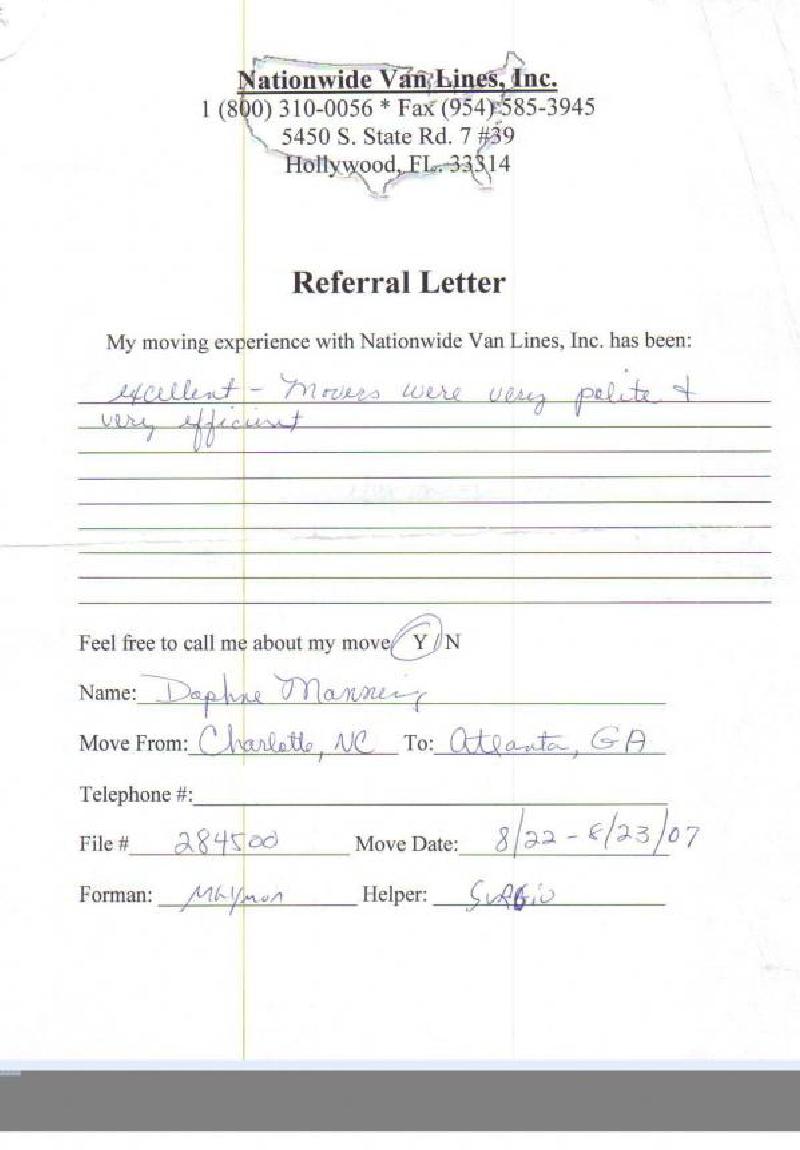 Nationwide Van Lines, Inc.
1 (800) 310-0056 * Fax (954) 585-3945
5450 S. State Rd. 7 #39
Hollywood, FL. 33314
Referral Letter
My moving experience with Nationwide Van Lines, Inc. has been:
excellent - Movers were very polite &
very efficient
Feel free to call me about my move Y/N
Name: Daphne Manning
Move From: Charlotte, NC To: Atlanta, GA
Telephone #:
File # 284500 Move Date: 8/22 - 8/23/07
Forman: Helper: